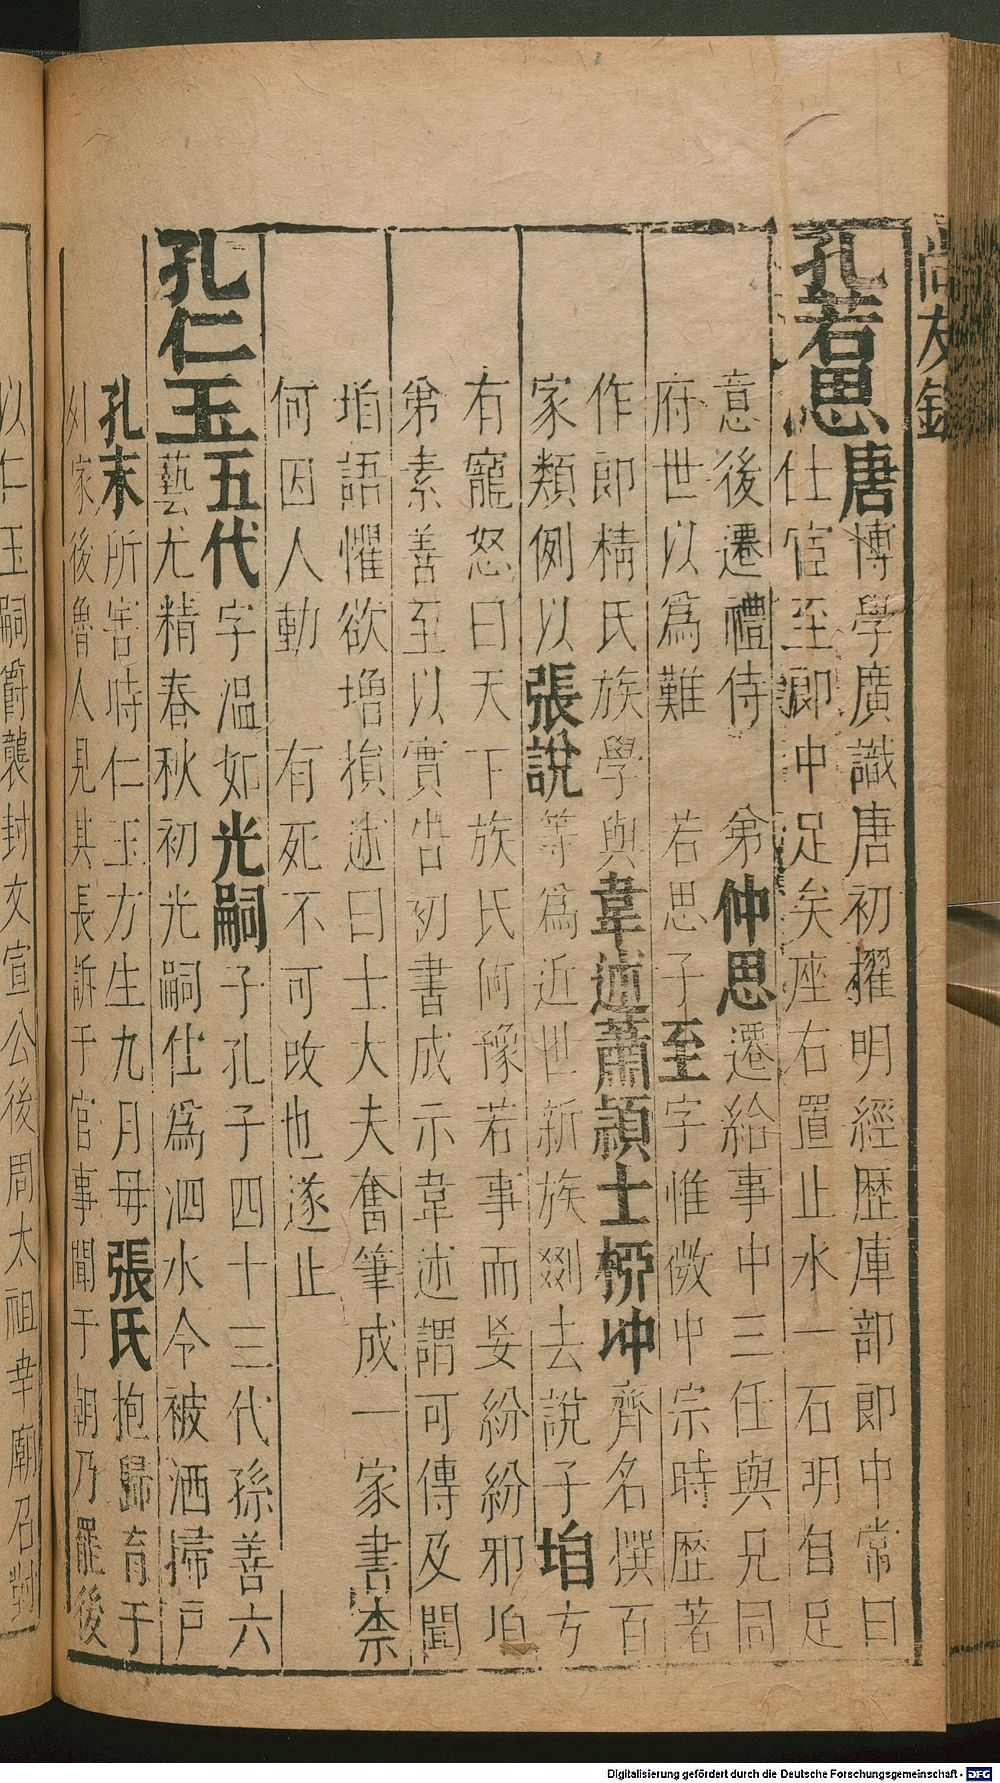 尚友錄
孔若思唐博學廣識唐初擢明經歷庫部郎中常曰
仕宦至郎中足矣座右置止水一石明自足
意後遷禮侍 弟仲思遷給事中三任與兄同
府世以為難 若思子至字惟微中宗時歷著
作郎精氏族學與韋述蕭頴士栁冲齊名撰百
家類例以張說等爲近世新族剟去說子垍方
有寵怒曰天下族氏何豫若事而妄紛紛邪垍
弟素善至以實告初書成示韋述謂可傳及聞
垍語懼欲增損述曰士大夫奮筆成一家書柰
何因人動 有死不可改也遂止
孔仁玉五代字溫如光嗣子孔子四十三代孫善六
藝尤精春秋初光嗣仕爲泗水令被洒掃戶
孔末所害時仁玉方生九月毋張氏抱歸育于
外家後魯人見其長訴于官事聞于朝乃罷後
以仁玉嗣爵襲封文宣公後周太祖幸廟召對
Digitalisierung gefördert durch die Deutsche Forschungsgemeinschaft - DFG